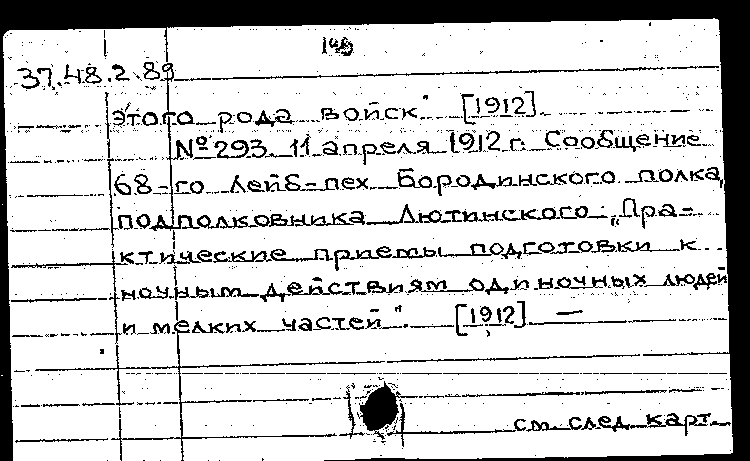 37.48.2.89
этого рода войск" [1912].
№ 293. 11 апреля 1912 г. Сообщение
68-го лейб-пех Бородинского полка,
подполковника Лютинского: „Пра-
ктические приемы подготовки к
ночным действиям одиночных людей
и мелких частей". [1912] —
см. след. карт.